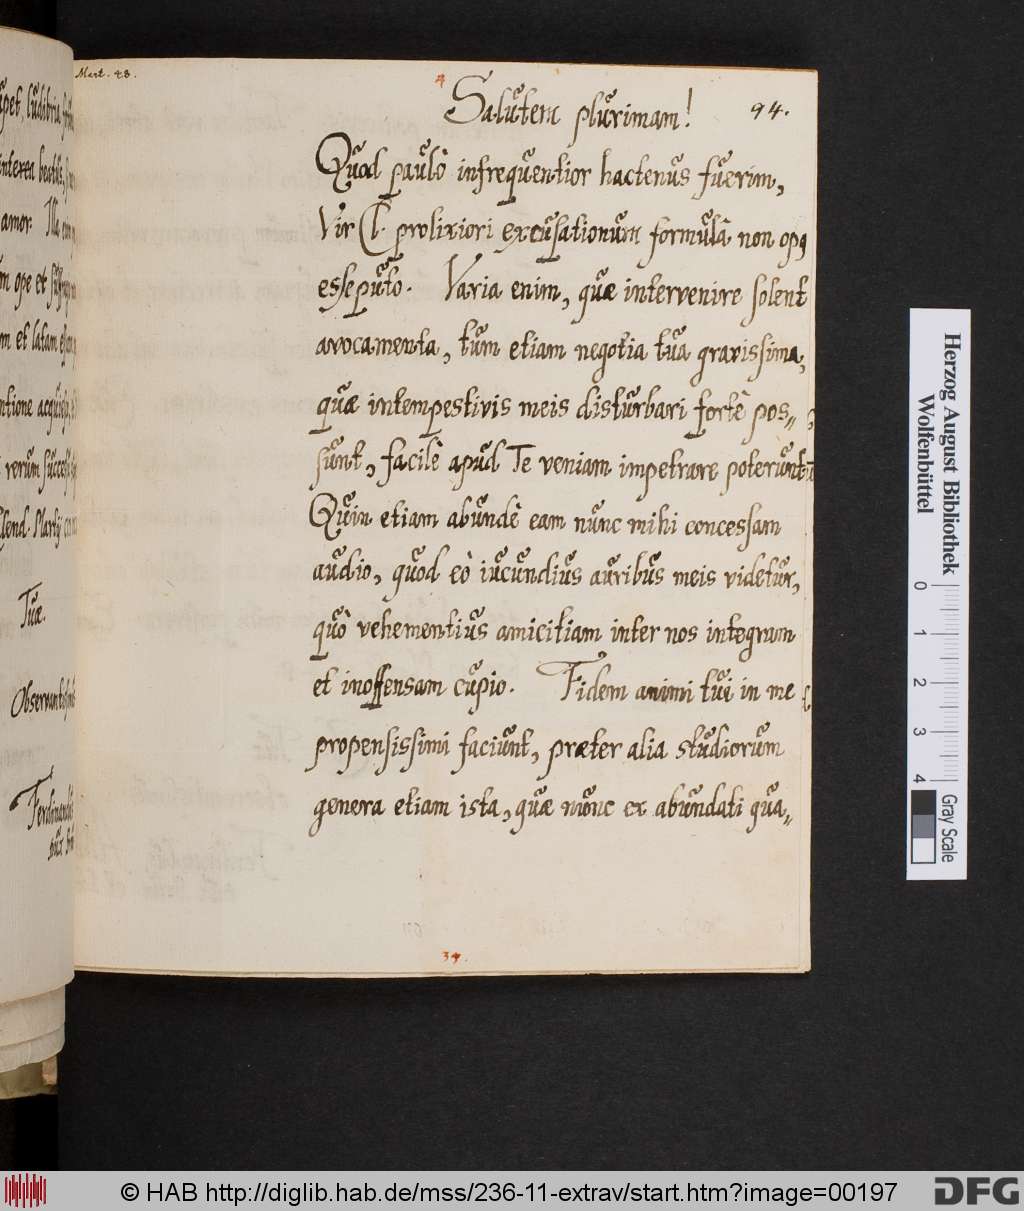 Mart. 43.
4
94.
Salutem plurimam!
Quod paulò infrequentior hactenus fuerim,
Vir Cl. prolixiori excusationum formulâ non opq
esse puto. Varia enim, quæ intervenire solent
avocamenta, tum etiam negotia tua gravissima,
quæ intempestivis meis disturbari fortè pos„
sunt, facilè apud Te veniam impetrare poterunt
Quin etiam abundè eam nunc mihi concessam
audio, quod eò iucundius auribus meis videtur,
quò vehementius amicitiam inter nos integram
et inoffensam cupio. Fidem animi tui in me
propensissimi faciunt, præter alia studiorum
genera etiam ista, quæ nunc ex abundati qua„
34.
amor. Illa
ope et
et latam
rerum
Tuæ.
Herzog August Bibliothek
Wolfenbüttel
0 1 2 3 4
Gray Scale
© HAB http://diglib.hab.de/mss/236-11-extrav/start.htm?image=00197
DFG